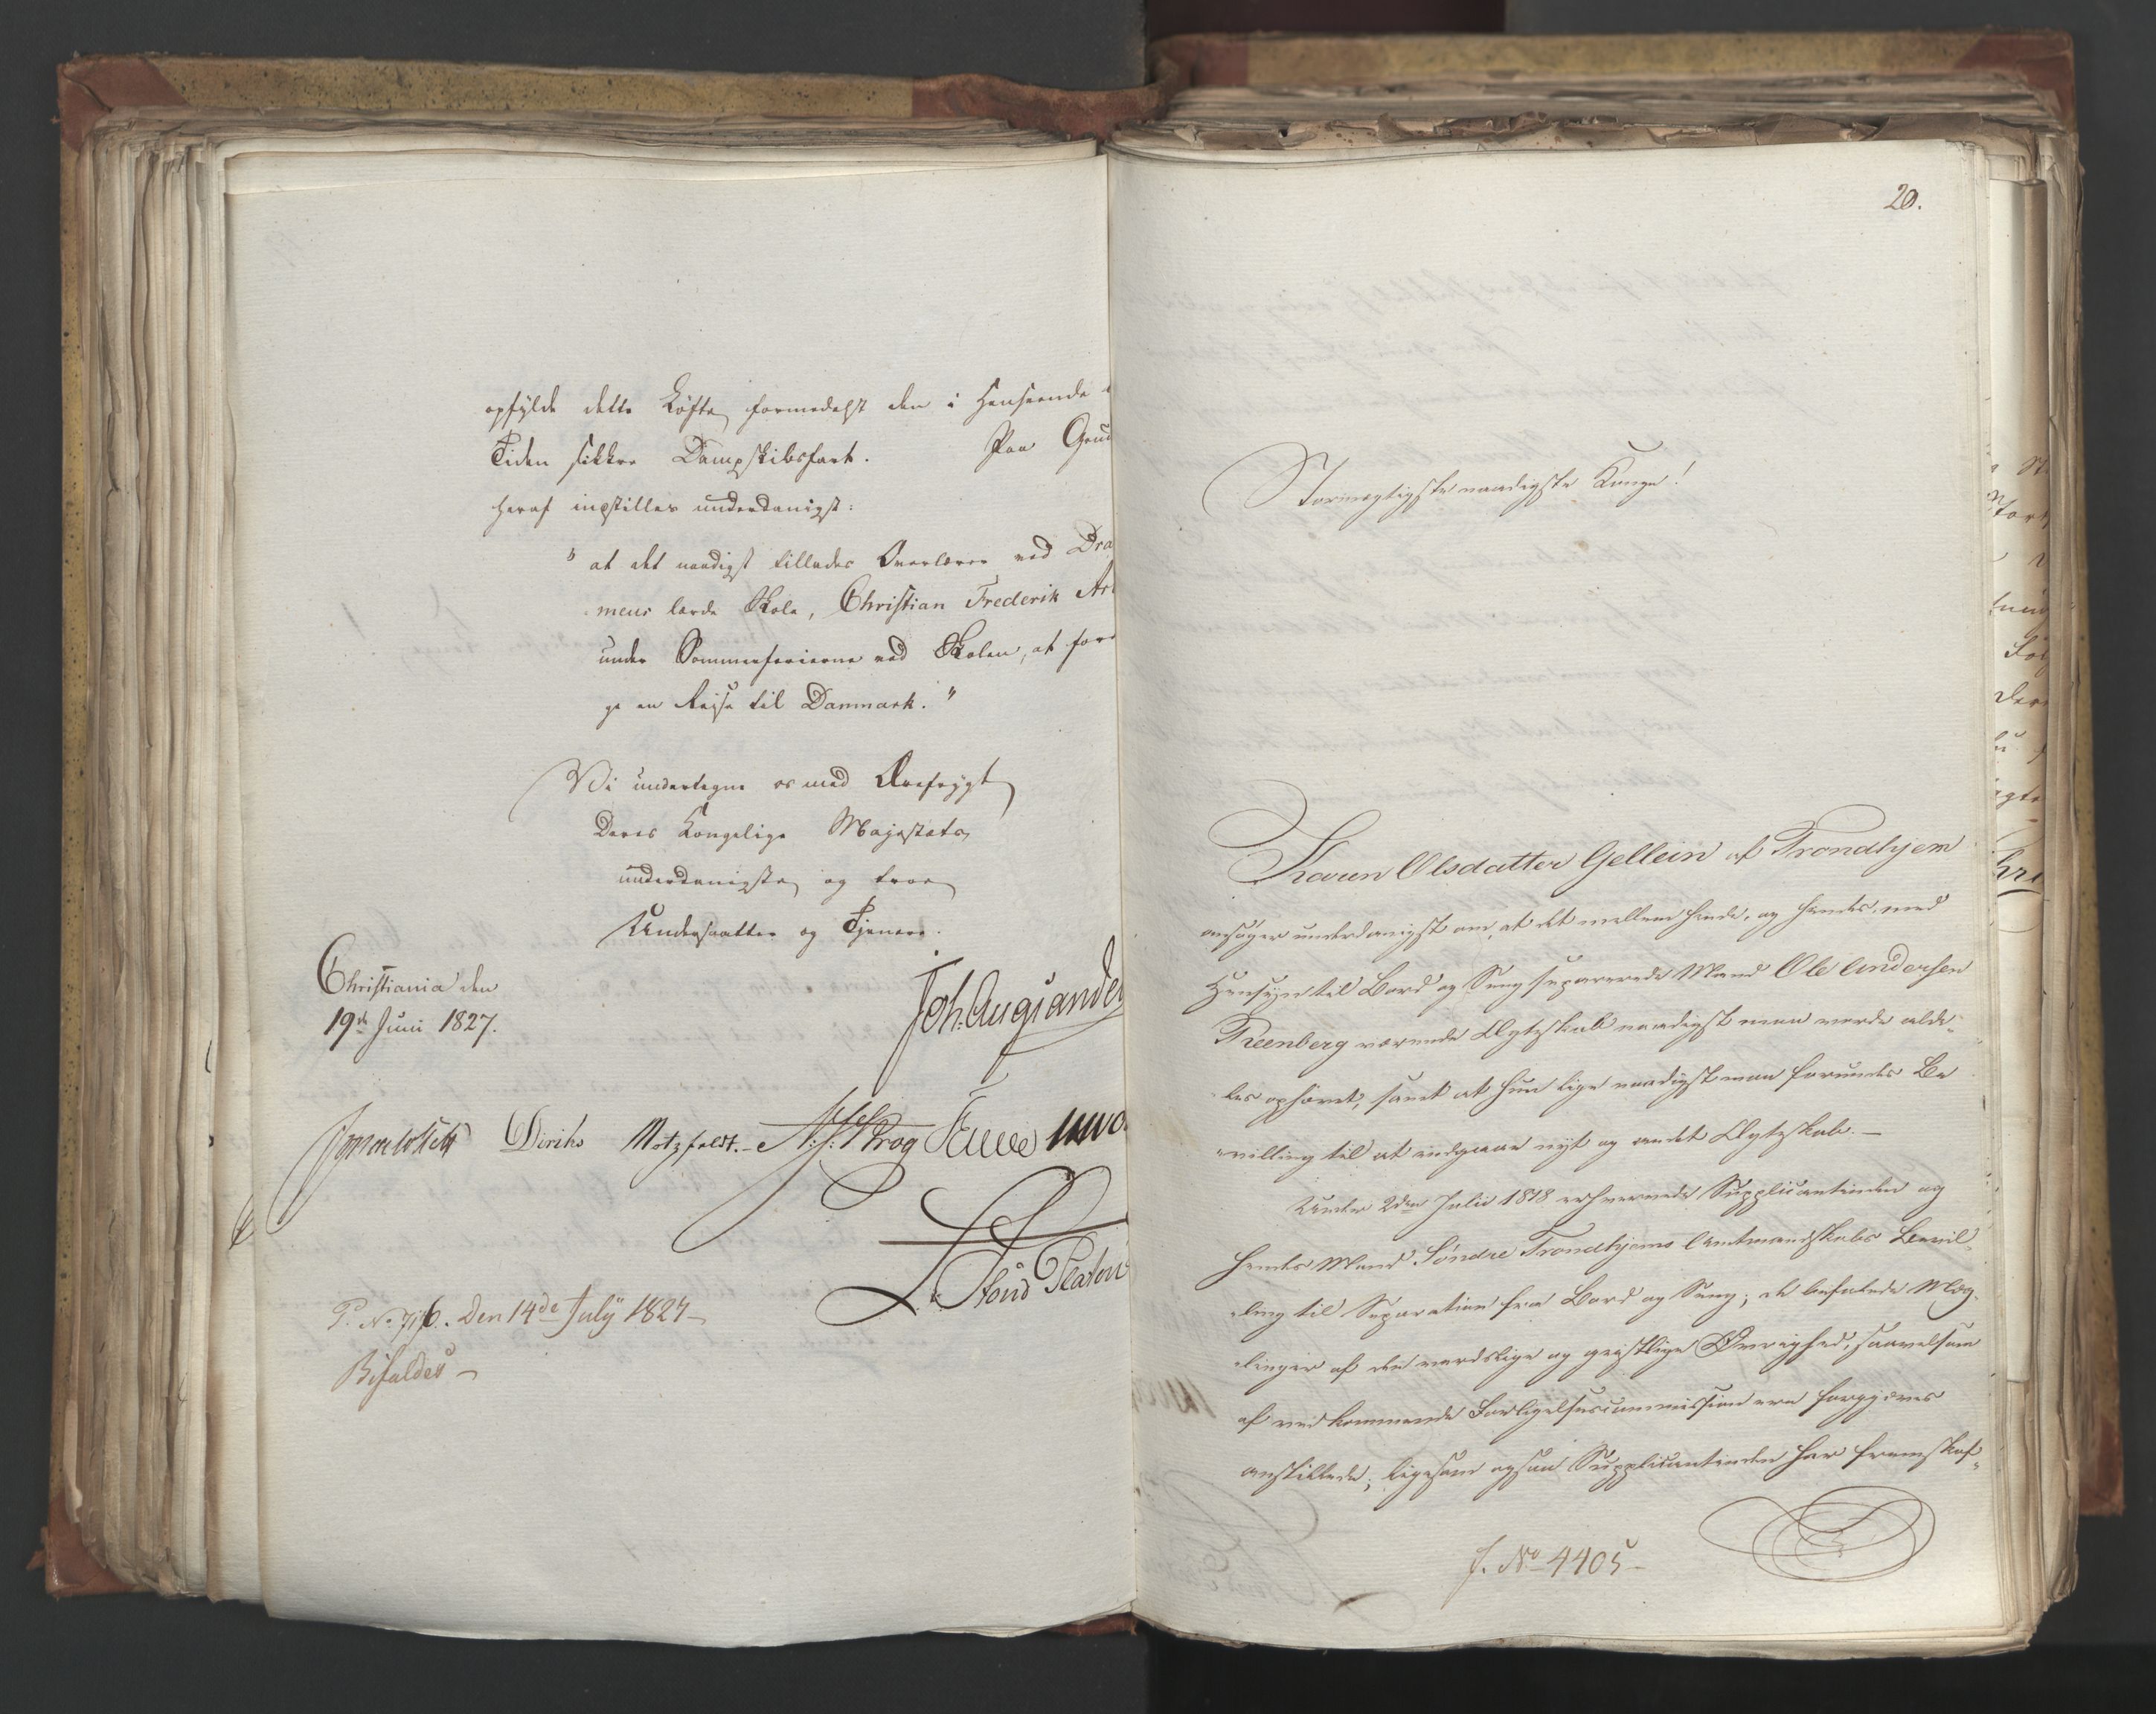 opfylde dette Løfte formedelst den i Henseende
Tiden sikkre Dampskibsfart. Paa Grund
heraf indstilles underdanigst:
" at det naadigst tillades Overlærer ved Dra
mens lærde Skole, Christian Frederik Ar
under Sommerferierne ved Skolen, at fore
ge en Reise til Danmark. "
Vi undertegne os med Ærefrygt
Deres Kongelige Majestæts
underdanigste og troe
Undersaatter og Tjenere.
Christiania den
19de Juni 1827.
Joh. Aug: Sandel
Diriks Motzfeldt. - N: J: Krog
L. Stoud Platou
P. No 716. Den 14de July 1827 -
Bifaldes -
20.
Stormægtigste naadigste Konge!
Karen Olsdatter Gellein af Trondhjem
ansøger underdanigst om, at det mellem hende, og hendes, med
Hensyn til Bord og Seng separerede Mand Ole Andersen
Reenberg værende Ægteskab naadigst maa vorde alde-
les ophævet, samt at hun lige naadigst maa forundes Be
villing til at indgaae nyt og andet Ægteskab. -
Under 2den Julii 1818 erhvervede Supplicantinden og
hendes Mand Søndre Trondhjems Amtmandskabs Bevil-
ling til Separation fra Bord og Seng; de befalede Mæg-
linger af den verdslige og geistlige Øvrighed, saavelsom
af vedkommende Forligelsescommission ere forgjæves
anstillede; ligesom ogsaa Supplicantinden har fremskaf-
J. No 4405 -